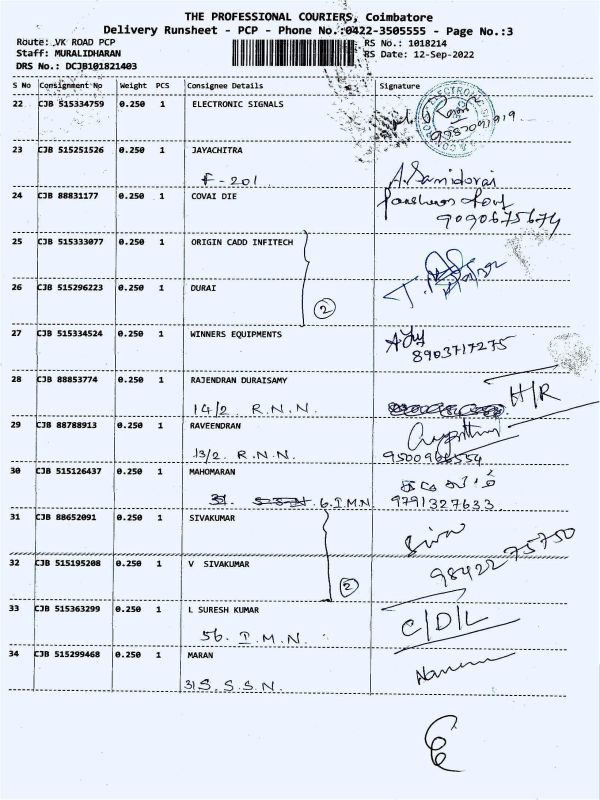 THE PROFESSIONAL COURIERS, Coimbatore
Delivery Runsheet - PCP - Phone No.:0422-3505555 - Page No.:3
Route: VK ROAD PCP
RS No.: 1018214
Staff: MURALIDHARAN
RS Date: 12-Sep-2022
DRS No.: DCJB101821403
S No Consignment No Weight PCS Consignee Details Signature
22 CJB 515334759 0.250 1 ELECTRONIC SIGNALS
23 CJB 515251526 0.250 1 JAYACHITRA
F-201.
24 CJB 88831177 0.250 1 COVAI DIE
9090675674
25 CJB 515333077 0.250 1 ORIGIN CADD INFITECH
26 CJB 515296223 0.250 1 DURAI
2
27 CJB 515334524 0.250 1 WINNERS EQUIPMENTS
8903717275
28 CJB 88853774 0.250 1 RAJENDRAN DURAISAMY
14/2. R.N.N. H/R
29 CJB 88788913 0.250 1 RAVEENDRAN
13/2. R.N.N.
30 CJB 515126437 0.250 1 MAHOMARAN
6.I.M.N. 9791327633
31 CJB 88652091 0.250 1 SIVAKUMAR
Siva
32 CJB 515195208 0.250 1 V SIVAKUMAR
2 98422 75750
33 CJB 515363299 0.250 1 L SURESH KUMAR
56. I.M.N. C/D/L
34 CJB 515299468 0.250 1 MARAN
31 S.S.S.N.